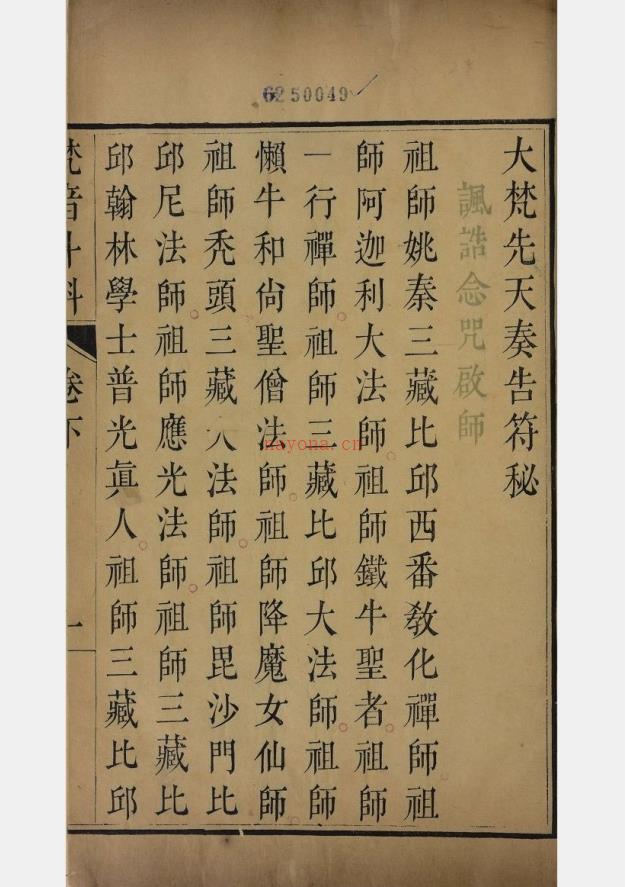 6250049
大梵先天奏告符秘
諷誥念咒啟師
祖師姚秦三藏比邱西番教化禪師祖
師阿迦利大法師祖師鐵牛聖者祖師
一行禪師祖師三藏比邱大法師祖師
懶牛和尙聖僧法師祖師降魔女仙師
祖師禿頭三藏大法師祖師毘沙門比
邱尼法師祖師應光法師祖師三藏比
邱翰林學士普光眞人祖師三藏比邱
梵音斗科 卷下 一
nayona.cn